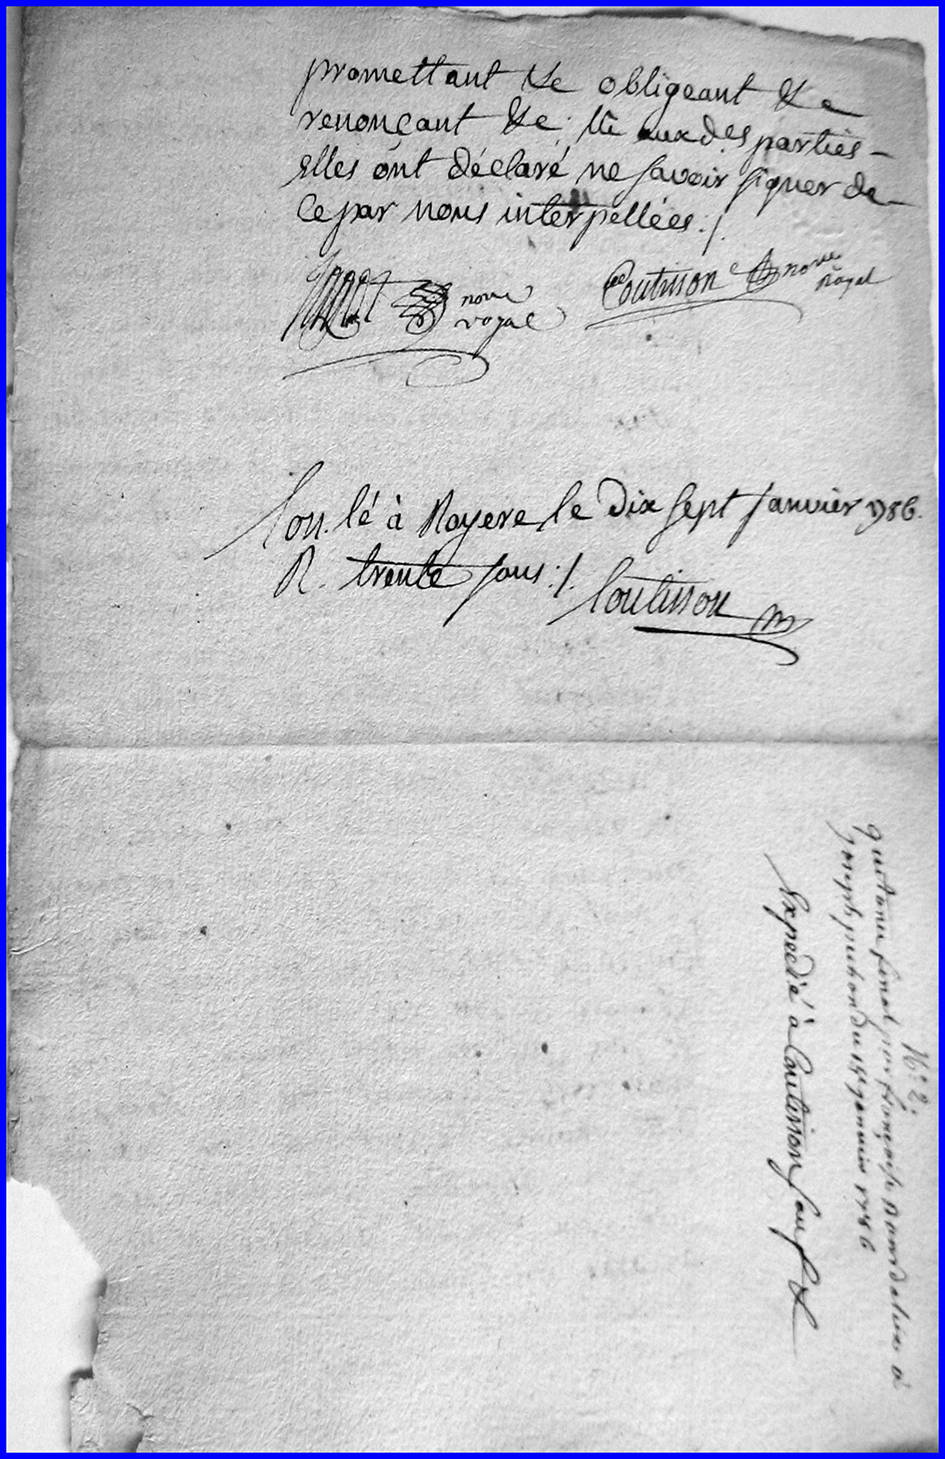 promettant &c obligeant &c
renonçant &c. lû auxdes parties
Elles ónt déclaré ne savoir signer de
ce par nous interpellées ./.
nore royal
Coutisson nore Royal
Con.lé à Royere le Dix sept Janvier 1786.
R. trente sous :/. Coutisson
N° 2.
quittance final par françoise Bourdeleix à
Joseph pichon du 15e janvier 1786
Expedié à Coutisson